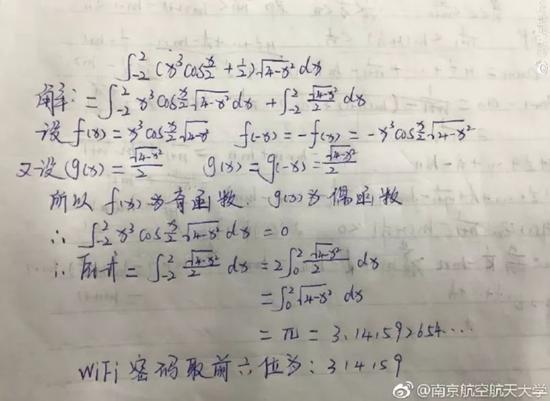 ∫₋₂² (x³cos x/2 + 1/2)√4-x² dx
解: = ∫₋₂² x³cos x/2 √4-x² dx + ∫₋₂² √4-x²/2 dx
设 f(x) = x³cos x/2 √4-x² f(-x) = -f(x) = -x³cos x/2 √4-x²
又设 (g(x) = √4-x²/2 g(x) = g(-x) = √4-x²/2
所以 f(x) 为奇函数. g(x) 为偶函数
∴ ∫₋₂² x³cos x/2 √4-x² dx = 0
∴ 原式 = ∫₋₂² √4-x²/2 dx = 2∫₀² √4-x²/2 dx
= ∫₀² √4-x² dx
= π = 3.141592654...
WiFi 密码取前六位为: 314159
@南京航空航天大学